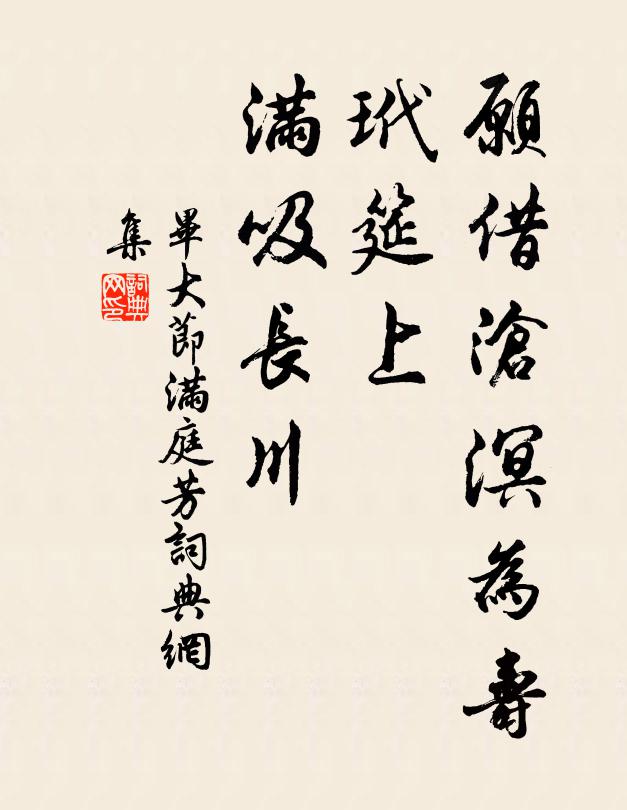 願借滄溟為壽
玳筵上
滿吸長川
畢大節滿庭芳詞典網
集
詞典网印